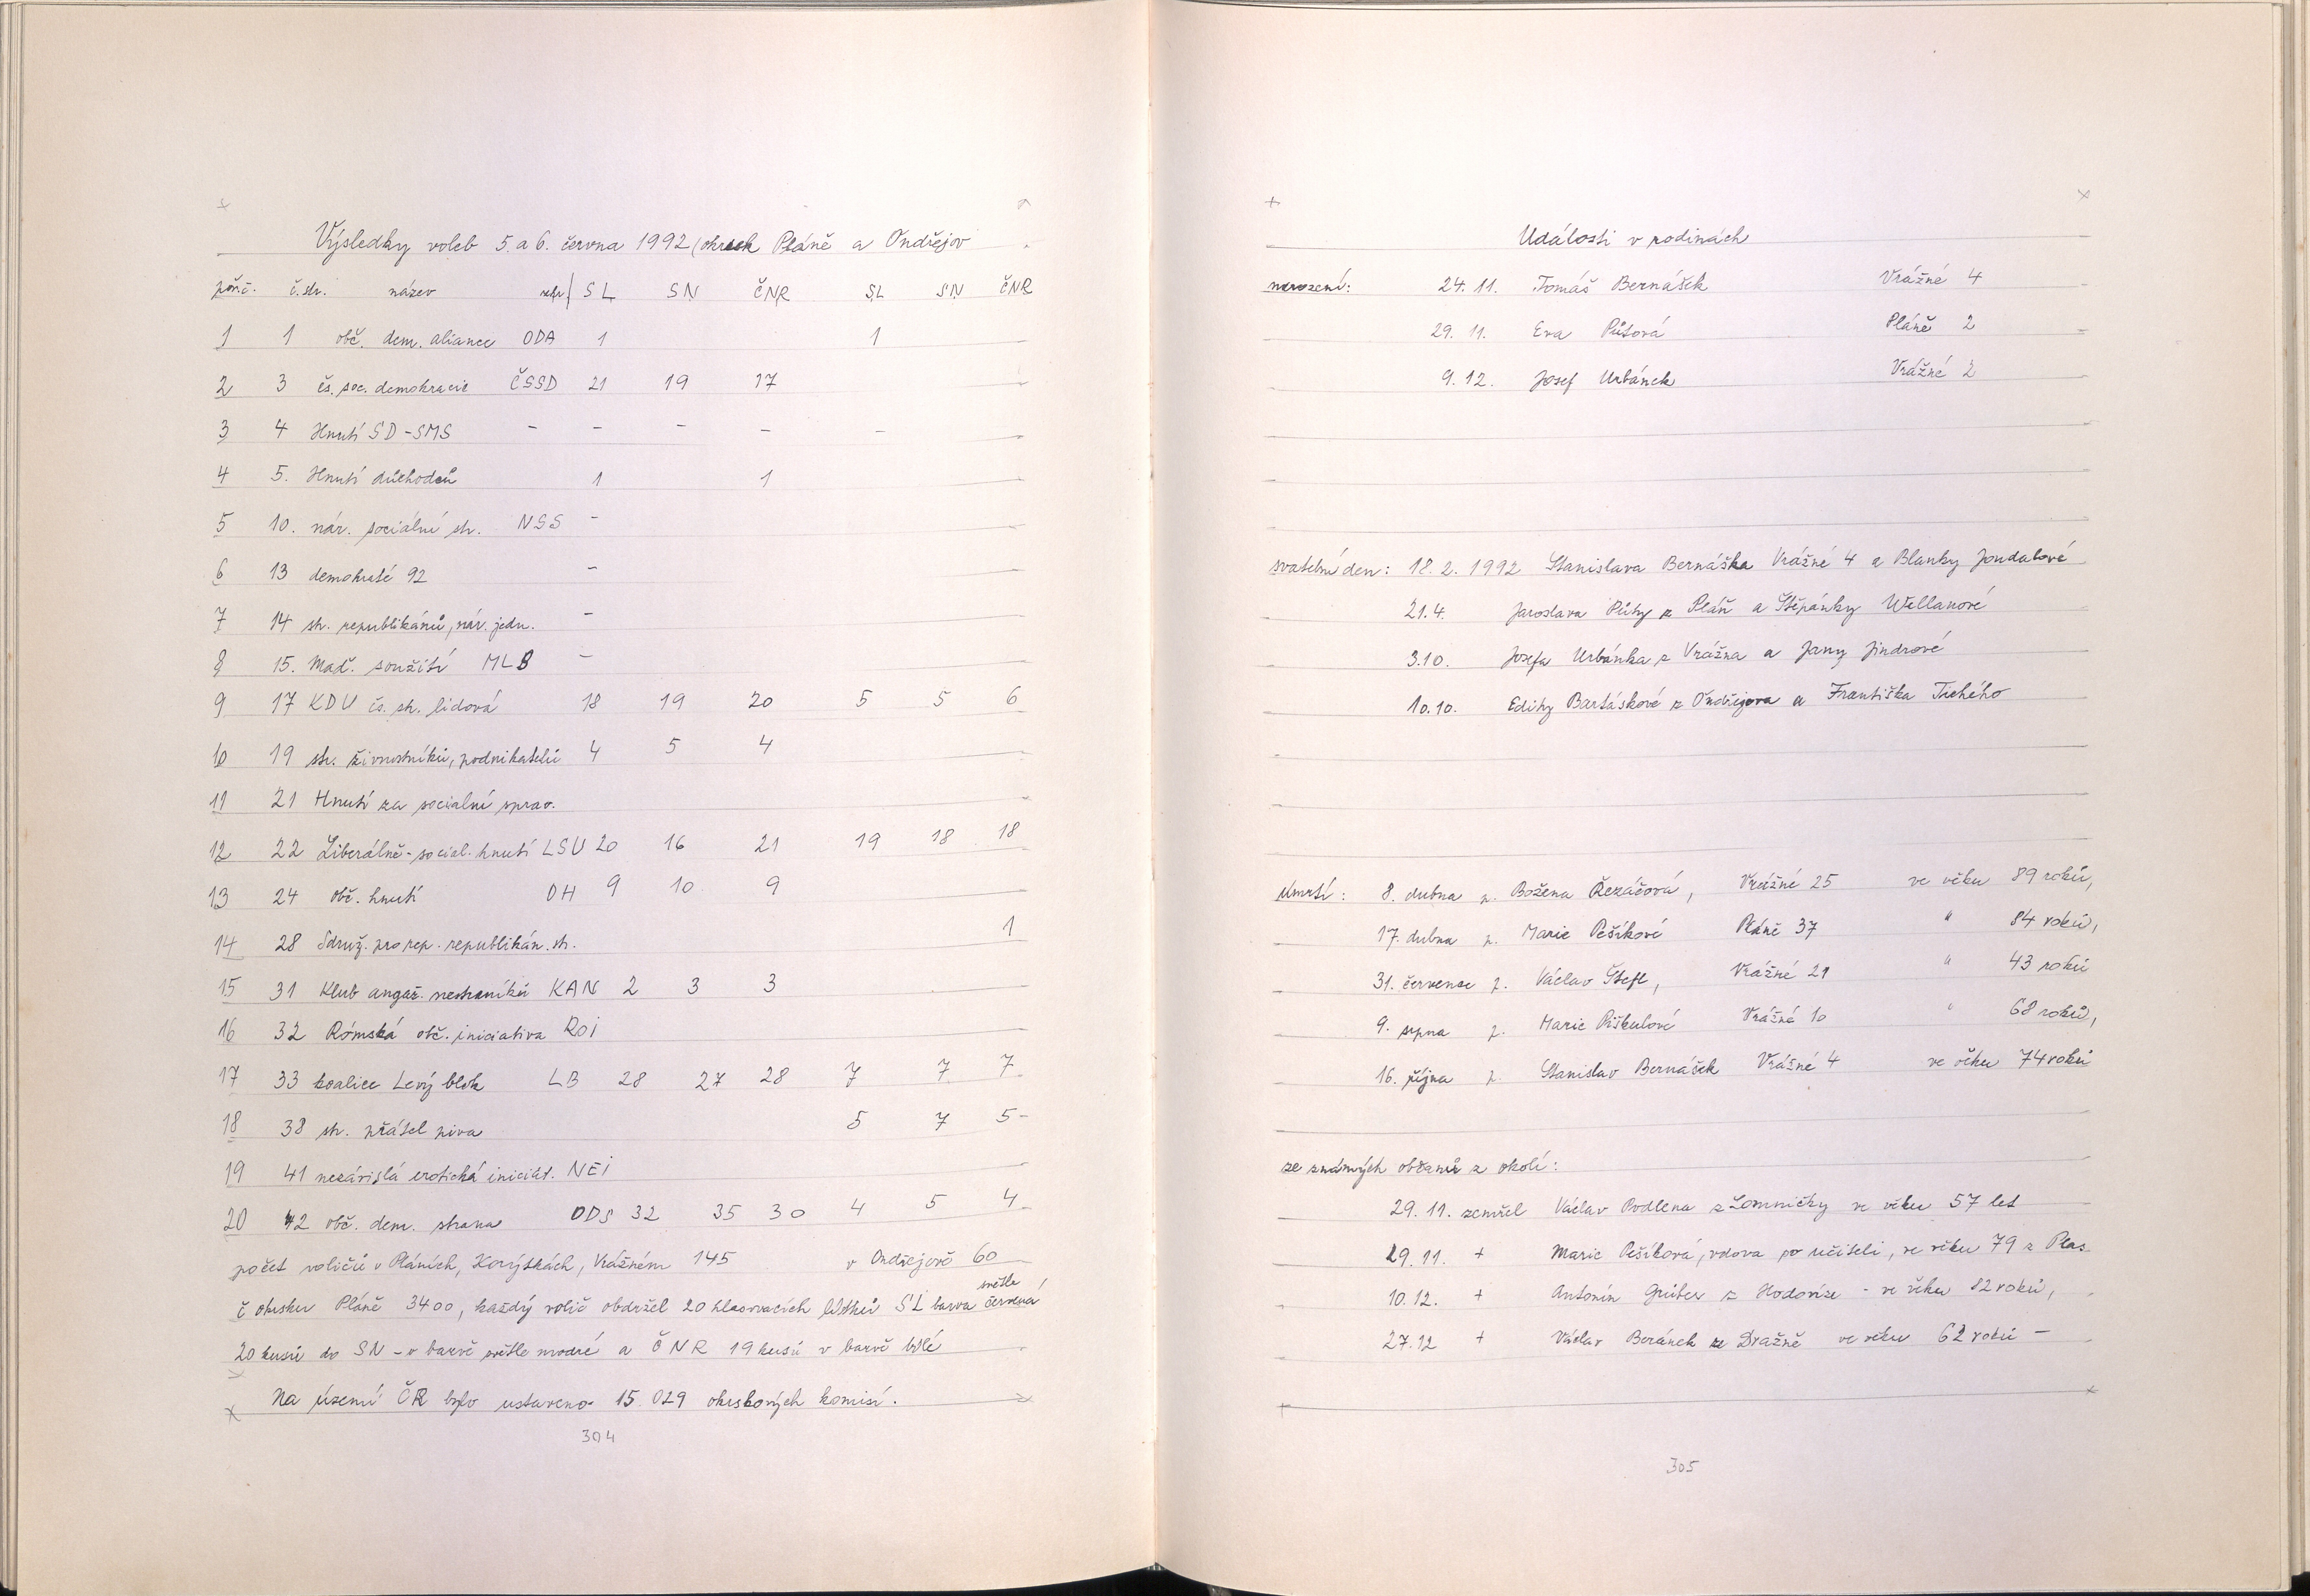 Výsledky voleb 5. a 6. června 1992 (okrsek Pláně a Ondřejov
poř.č. č.str. název zkr/ SL SN ČNR SL SN ČNR
1 1 obč. dem. aliance ODA 1 1
2 3 čs. soc. demokracie ČSSD 21 19 17
3 4 Hnutí SD-SMS - - - - -
4 5. Hnutí důchodců 1 1
5 10. nár. sociální str. NSS -
6 13 demokraté 92 -
7 14 str. republikánů, nár. jedn. -
8 15. Maď. soužití MLB -
9 17 KDU čs. str. lidová 18 19 20 5 5 6
10 19 str. živnostníků, podnikatelů 4 5 4
11 21 Hnutí za sociální sprav.
12 22 Liberálně-social. hnutí LSU 20 16 21 19 18 18
13 24 obč. hnutí OH 9 10 9
14 28 Sdruž. pro rep. republikán. str. 1
15 31 Klub angaž. nestraníků KAN 2 3 3
16 32 Rómská obč. iniciativa ROI
17 33 koalice Levý blok LB 28 27 28 7 7 7
18 38 str. přátel piva 5 7 5-
19 41 nezávislá erotická iniciat. NEI
20 42 obč. dem. strana ODS 32 35 30 4 5 4
počet voličů v Pláních, Korýtkách, Vrážném 145 v Ondřejově 60
č okrsku Pláně 3400, každý volič obdržel 20 hlasovacích lístků SL barva světle červená
20 kusů do SN - v barvě světle modré a ČNR 19 kusů v barvě bílé
Na území ČR bylo ustaveno 15.029 okrskových komisí.
304
Události v rodinách
narození: 24. 11. Tomáš Bernášek Vrážné 4
29. 11. Eva Půtová Pláně 2
9. 12. Josef Urbánek Vrážné 2
svatební den: 18. 2. 1992 Stanislava Bernáška Vrážné 4 a Blanky Joudalové
21.4. Jaroslava Půty z Pláň a Štěpánky Wellanové
3.10. Josefa Urbánka z Vrážna a Jany Jindrové
10.10. Edity Bartáskové z Ondřejova a Františka Tichého
úmrtí: 8. dubna p. Božena Řezáčová, Vrážné 25 ve věku 89 roků,
17. dubna p. Marie Pešíková Pláně 37 " 84 roků,
31. července p. Václav Štefl, Vrážné 21 " 43 roků
9. srpna p. Marie Piškulová Vrážné 10 " 68 roků,
16. října p. Stanislav Bernášek Vrážné 4 ve věku 74 roků
ze známých občanů z okolí:
29. 11. zemřel Václav Podlena z Lomničky ve věku 57 let
29. 11. + Marie Pešíková, vdova po učiteli, ve věku 79 z Plas
10. 12. + Antonín Grüber z Hodovíze - ve věku 82 roků,
27.12 + Václav Beránek ze Dražně ve věku 62 roků -
305